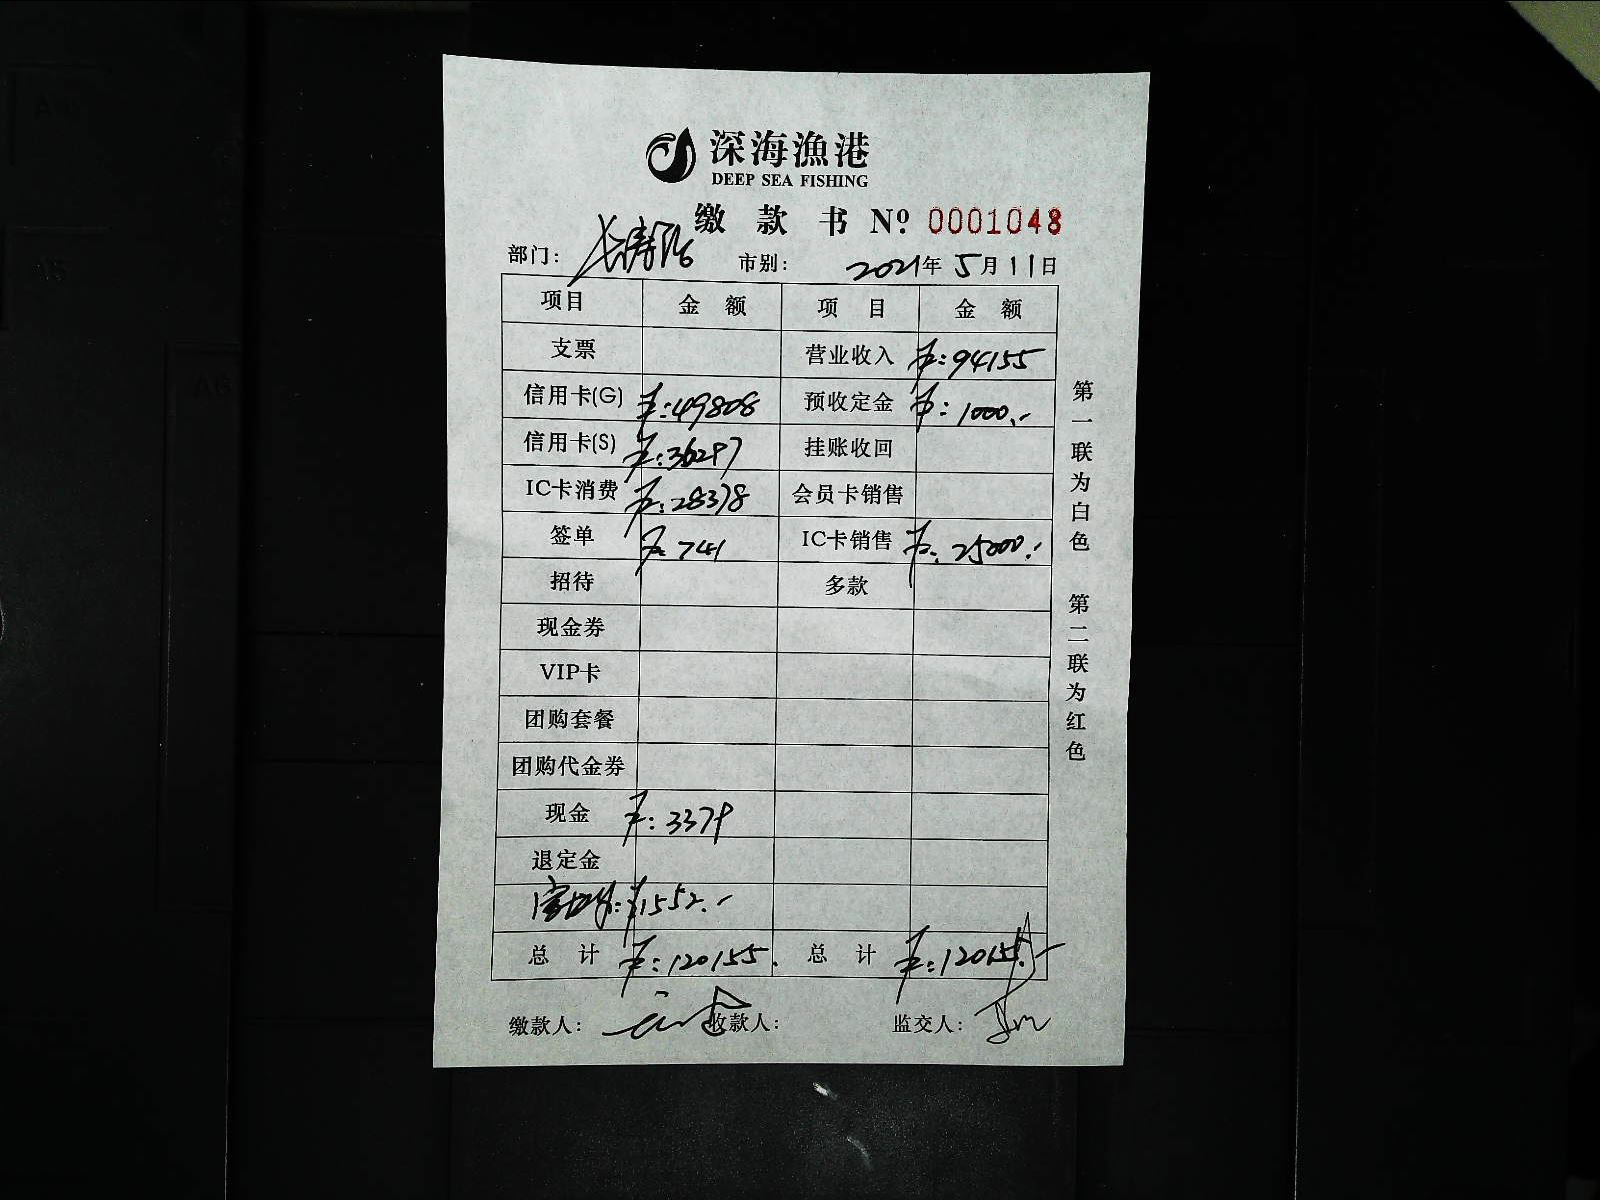 深海漁港
DEEP SEA FISHING
缴款书 Nº 0001048
部门: 长寿路 市别: 2021年5月11日
项目 金额 项目 金额
支票 营业收入 ¥:94155
信用卡(G) ¥:49808 预收定金 ¥:1000.-
信用卡(S) ¥:36297 挂账收回
IC卡消费 ¥:28378 会员卡销售
签单 ¥:741 IC卡销售 ¥:25000.-
招待 多款
现金券
VIP卡
团购套餐
团购代金券
现金 ¥:3379
退定金
¥1552.-
总计 ¥:120155. 总计 ¥:120155.-
缴款人: 收款人: 监交人:
第一联为白色 第二联为红色